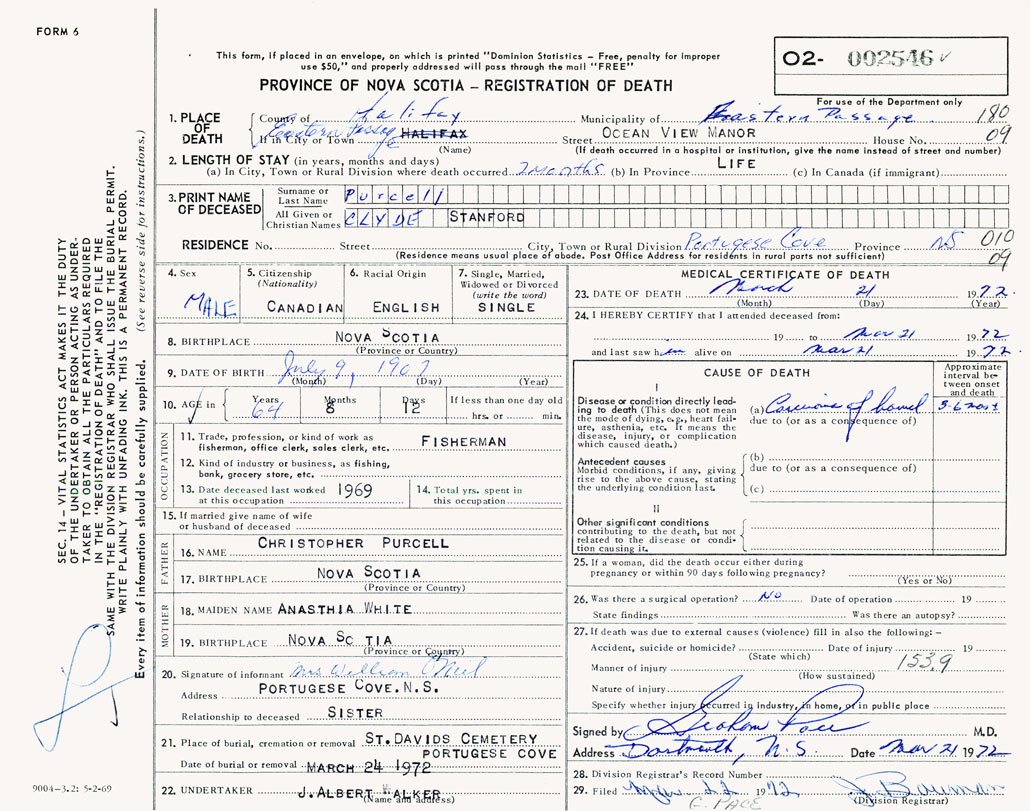 FORM 6
This form, if placed in an envelope, on which is printed "Dominion Statistics – Free, penalty for improper
use $50," and properly addressed will pass through the mail "FREE"
O2- 002546
PROVINCE OF NOVA SCOTIA – REGISTRATION OF DEATH
For use of the Department only
1. PLACE OF DEATH
County of Halifax Municipality of Eastern Passage 180
If in City or Town Eastern Passage HALIFAX Street OCEAN VIEW MANOR House No. 09
(Name) (If death occurred in a hospital or institution, give the name instead of street and number)
2. LENGTH OF STAY (in years, months and days)
(a) In City, Town or Rural Division where death occurred 2 Months (b) In Province LIFE (c) In Canada (if immigrant)
3. PRINT NAME OF DECEASED
Surname or Last Name Purcell
All Given or Christian Names CLYDE STANFORD
RESIDENCE No. Street City, Town or Rural Division Portugese Cove Province NS 010
(Residence means usual place of abode. Post Office Address for residents in rural parts not sufficient) 09
4. Sex MALE
5. Citizenship (Nationality) CANADIAN
6. Racial Origin ENGLISH
7. Single, Married, Widowed or Divorced (write the word) SINGLE
8. BIRTHPLACE NOVA SCOTIA
(Province or Country)
9. DATE OF BIRTH July 9, 1907
(Month) (Day) (Year)
10. AGE in Years 64 Months 8 Days 12 If less than one day old
hrs. or min.
OCCUPATION
11. Trade, profession, or kind of work as
fisherman, office clerk, sales clerk, etc. FISHERMAN
12. Kind of industry or business, as fishing,
bank, grocery store, etc.
13. Date deceased last worked
at this occupation 1969
14. Total yrs. spent in
this occupation
15. If married give name of wife
or husband of deceased
FATHER
16. NAME CHRISTOPHER PURCELL
17. BIRTHPLACE NOVA SCOTIA
(Province or Country)
MOTHER
18. MAIDEN NAME ANASTHIA WHITE
19. BIRTHPLACE NOVA SC TIA
(Province or Country)
20. Signature of informant Mrs William O'Neil
Address PORTUGESE COVE. N.S.
Relationship to deceased SISTER
21. Place of burial, cremation or removal ST. DAVIDS CEMETERY
PORTUGESE COVE
Date of burial or removal MARCH 24 1972
22. UNDERTAKER J. ALBERT WALKER
(Name and address)
MEDICAL CERTIFICATE OF DEATH
23. DATE OF DEATH March 21 1972.
(Month) (Day) (Year)
24. I HEREBY CERTIFY that I attended deceased from:
19 to Mar 21 1972
and last saw him alive on Mar 21 1972.
CAUSE OF DEATH
Approximate interval between onset and death
I
Disease or condition directly lead-
ing to death (This does not mean
the mode of dying, e.g., heart fail-
ure, asthenia, etc. It means the
disease, injury, or complication
which caused death.)
(a) Carcinoma of bowel
due to (or as a consequence of)
Antecedent causes
Morbid conditions, if any, giving
rise to the above cause, stating
the underlying condition last.
(b)
due to (or as a consequence of)
(c)
II
Other significant conditions
contributing to the death, but not
related to the disease or condi-
tion causing it.
25. If a woman, did the death occur either during
pregnancy or within 90 days following pregnancy?
(Yes or No)
26. Was there a surgical operation? No Date of operation 19
State findings Was there an autopsy?
27. If death was due to external causes (violence) fill in also the following: –
Accident, suicide or homicide? Date of injury 19
(State which) 153.9
Manner of injury
(How sustained)
Nature of injury
Specify whether injury occurred in industry, in home, or in public place
Signed by Graham Pace M.D.
Address Dartmouth, N.S. Date Mar 21 1972
28. Division Registrar's Record Number
29. Filed Mar. 22 1972 J. Bauman
G. PACE (Division Registrar)
SEC. 14 – VITAL STATISTICS ACT MAKES IT THE DUTY
OF THE UNDERTAKER OR PERSON ACTING AS UNDER-
TAKER TO OBTAIN ALL THE PARTICULARS REQUIRED
IN THE "REGISTRATION OF DEATH" AND TO FILE THE
SAME WITH THE DIVISION REGISTRAR WHO SHALL ISSUE THE BURIAL PERMIT.
WRITE PLAINLY WITH UNFADING INK. THIS IS A PERMANENT RECORD.
Every item of information should be carefully supplied. (See reverse side for instructions.)
9004-3.2: 5-2-69